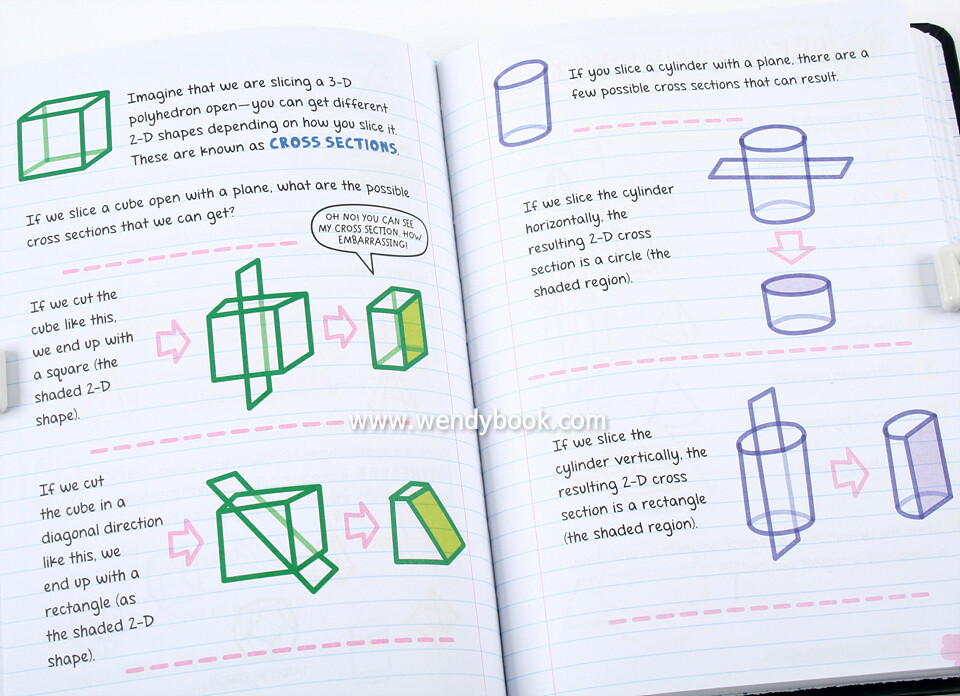 Imagine that we are slicing a 3-D
polyhedron open—you can get different
2-D shapes depending on how you slice it.
These are known as CROSS SECTIONS.
If we slice a cube open with a plane, what are the possible
cross sections that we can get?
OH NO! YOU CAN SEE
MY CROSS SECTION. HOW
EMBARRASSING!
If we cut the
cube like this,
we end up with
a square (the
shaded 2-D
shape).
If we cut
the cube in a
diagonal direction
like this, we
end up with a
rectangle (as
the shaded 2-D
shape).
If you slice a cylinder with a plane, there are a
few possible cross sections that can result.
If we slice the cylinder
horizontally, the
resulting 2-D cross
section is a circle (the
shaded region).
www.wendybook.com
If we slice the
cylinder vertically, the
resulting 2-D cross
section is a rectangle
(the shaded region).